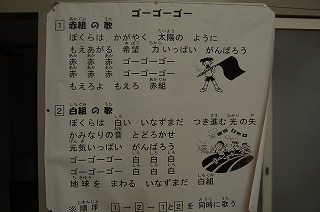 ゴーゴーゴー
1 赤組の歌
ぼくらは かがやく 太陽の ように
もえあがる 希望 力いっぱい がんばろう
赤 赤 赤 ゴーゴーゴー
赤 赤 赤 ゴーゴーゴー
もえろよ もえろ 赤組
2 白組の歌
ぼくらは 白い いなずまだ つき進む 光の矢
かみなりの音 とどろかせ
元気いっぱい がんばろう
ゴーゴーゴー 白 白 白
ゴーゴーゴー 白 白 白
地球を まわる いなずまだ 白組
※順序 1→2→1と2を同時に歌う